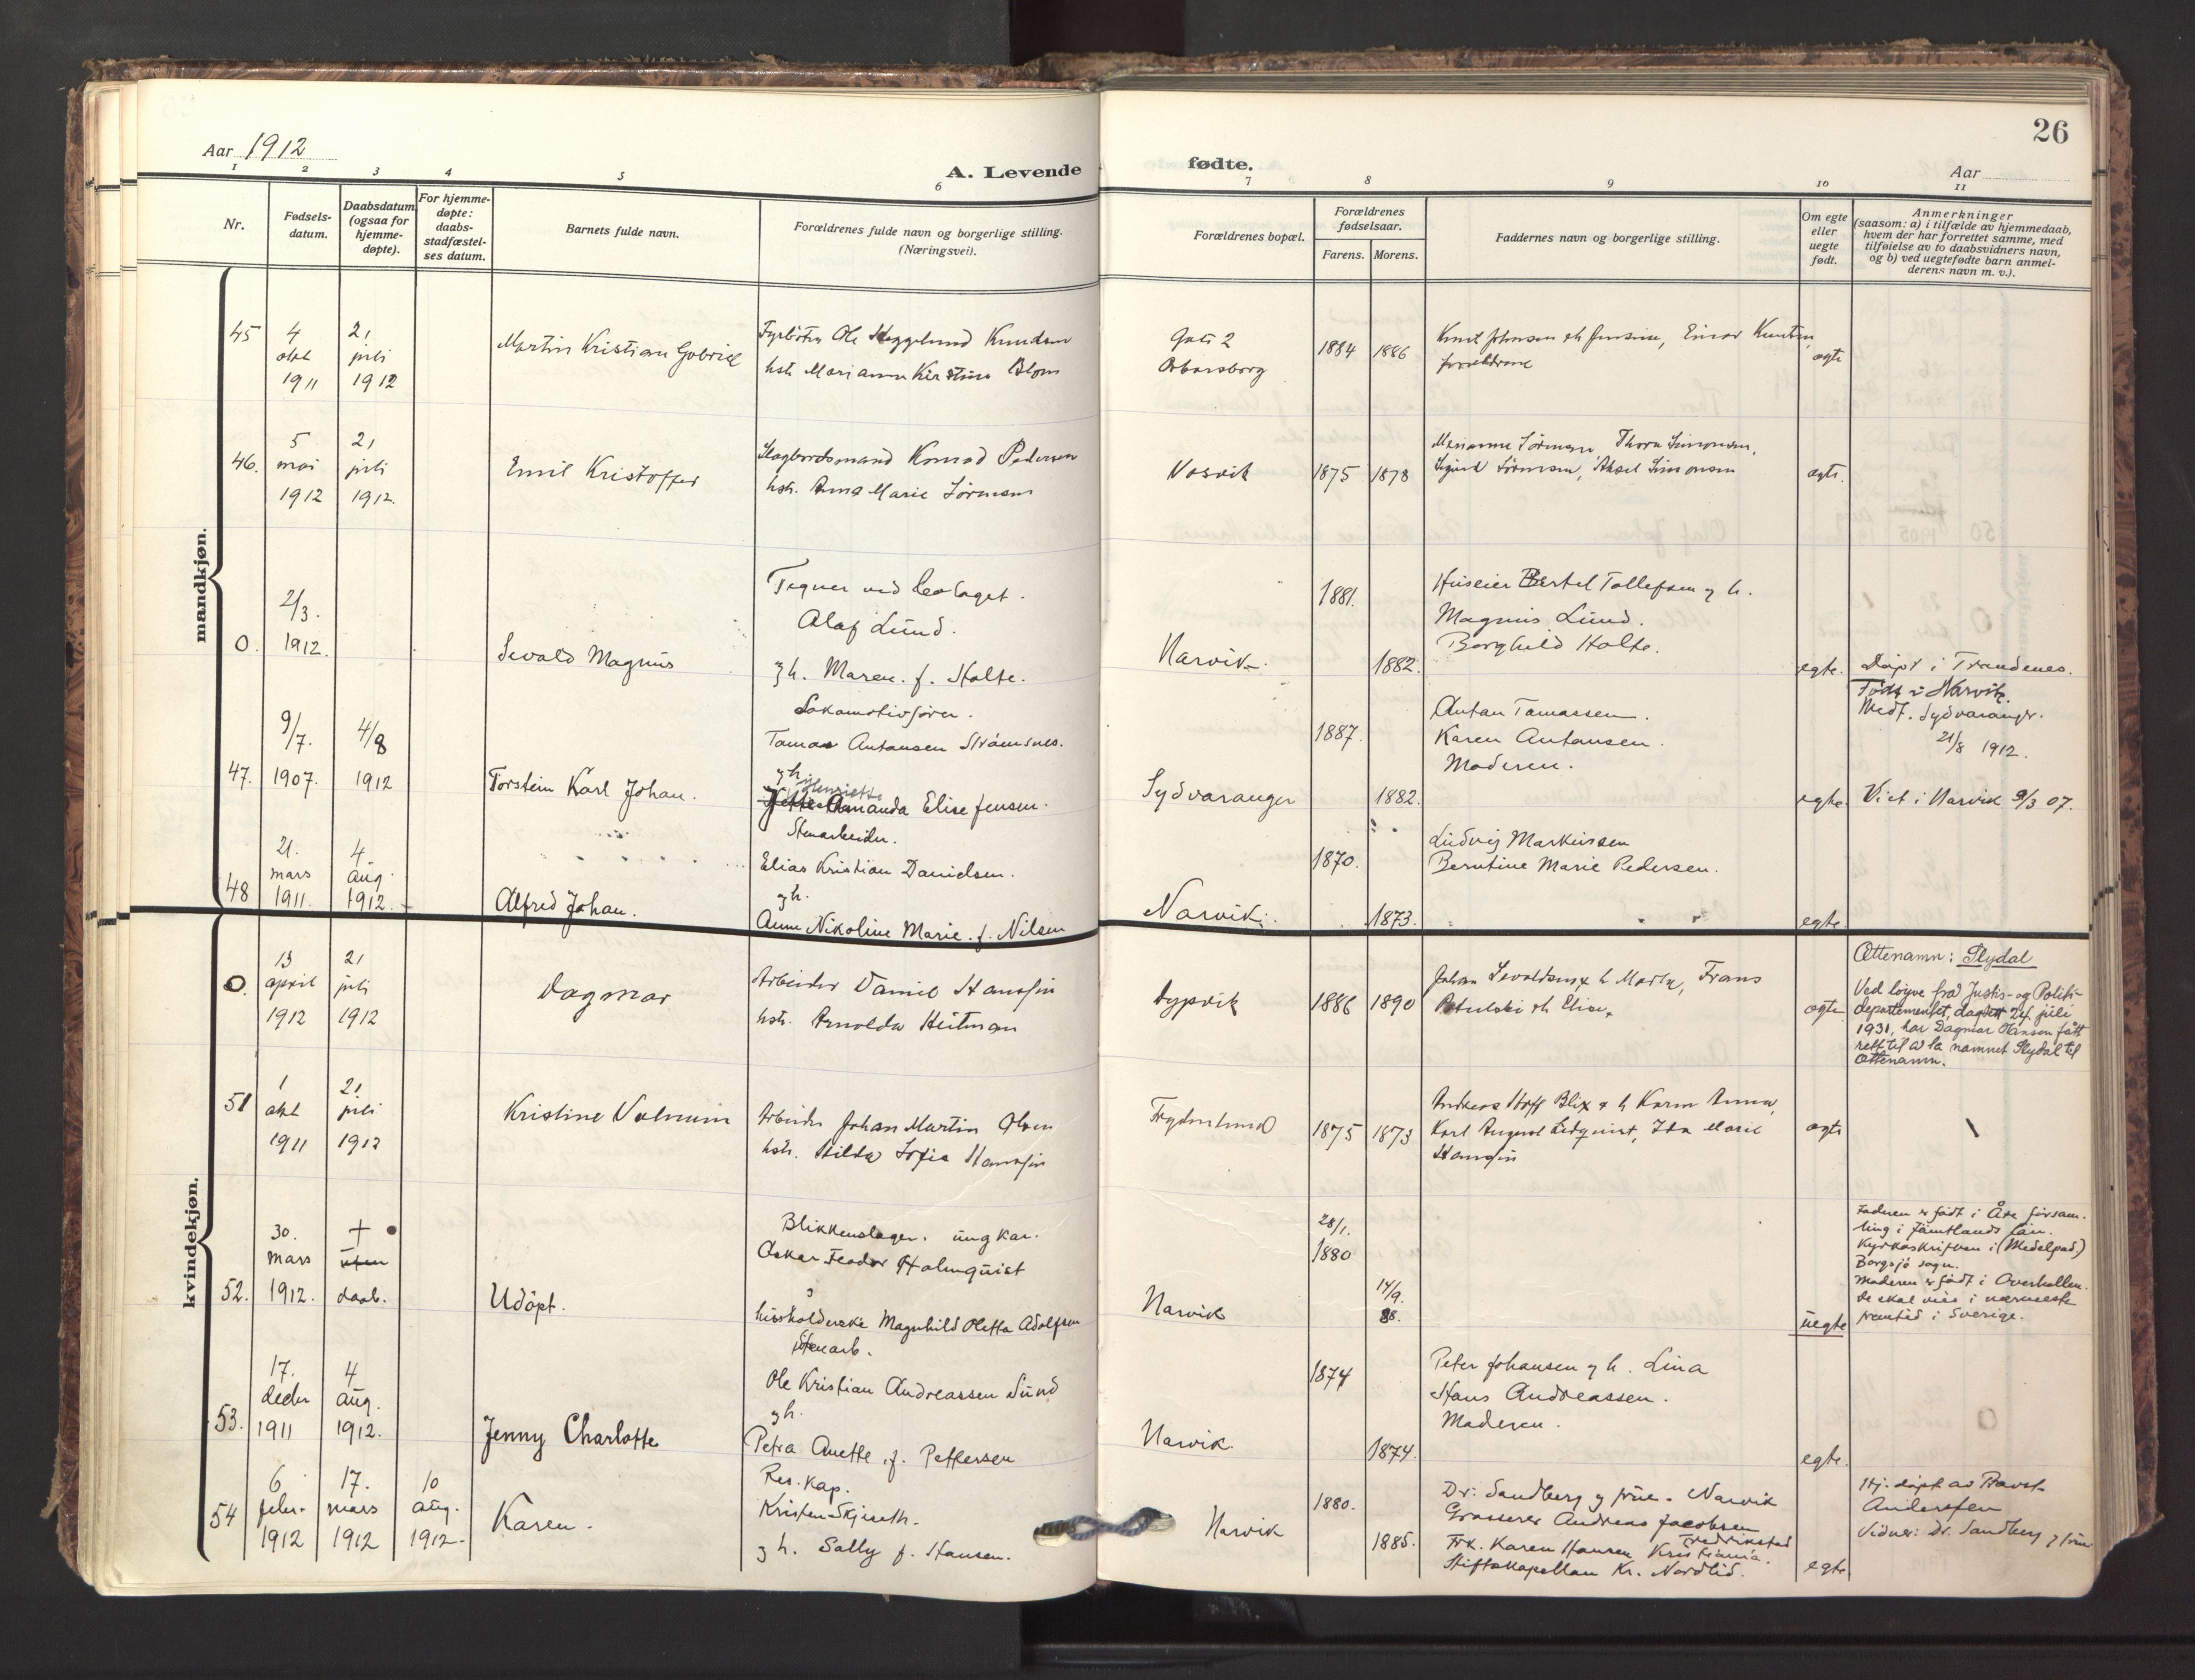 Aar 1912
A. Levende
1 2 3 4 5 6
Nr.
Fødsels-
datum.
Daabsdatum
(ogsaa for
hjemme-
døpte).
For hjemme-
døpte:
daabs-
stadfæstel-
ses datum.
Barnets fulde navn.
Forældrenes fulde navn og borgerlige stilling.
(Næringsvei).
mandkjøn.
45 4 21
okt juli
1911 1912
Martin Kristian Gabriel
Fyrbøter Ole Knudsen
hstr Marianne Kirstine Blom
46. 5 21
mai juli
1912 1912.
Emil Kristoffer
Konrad Pedersen
hstr. Anna Marie Sørensen
0. 2/3.
1912.
Sevald Magnus
Tegner ved
Olaf Lund.
g h. Maren. f. Holte.
47. 9/7. 4/8
1907. 1912
Torstein Karl Johan.
Lokomotivfører.
Tomas Antonsen Strømsnes.
g h.
Henriette
Amanda Elise Jensen.
48 21. 4
mars aug.
1911. 1912.
Alfred Johan.
Stenarbeider.
Elias Kristian Danielsen.
g h.
Anne Nikoline Marie. f. Nilsen
kvindekjøn.
0. 13 21
april juli
1912 1912
Dagmar
Arbeider Daniel Hansen
hstr. Arnolda Heitman
51 1 21
okt juli
1911 1912
Kristine
Arbeider Johan Martin Olsen
hstr. Hilda Sofie Hansen
52. 30. +
mars uten
1912. daab.
Udöpt.
Blikkenslager. ungkar.
Oskar Feodor Holmquist
husholderske Magnhild Oletta Adolfsen
53. 17. 4
decbr aug.
1911 1912.
Jenny Charlotte
Stenarb.
Ole Kristian Andreassen Sund
g h.
Petra Anette f. Pettersen
54 6 17. 10
febr. mars aug.
1912 1912 1912.
Karen.
Res. kap.
Kristen Skjeseth.
g h. Sally f. Hansen.
26
fødte.
Aar
7 8 9 10 11
Forældrenes bopæl.
Forældrenes
fødselsaar.
Farens. Morens.
Faddernes navn og borgerlige stilling.
Om egte
eller
uegte
født.
Anmerkninger
(saasom: a) i tilfælde av hjemmedaab,
hvem der har forrettet samme, med
tilføielse av to daabsvidners navn,
og b) ved uegtefødte barn anmel-
derens navn m. v.).
Gate 2
1884 1886
Einar Knutsen,
forældrene
egte
1875 1878
Marianne Sørensen, Thora Simonsen,
Sigurd Sørensen, Aksel Simonsen
egte.
Narvik.
1881.
1882.
Huseier Bertel Tollefsen g h.
Magnus Lund.
Borghild Holte.
egte.
Døpt i Trondenes.
Født i Narvik.
Medt. Sydvaranger.
21/8 1912.
Sydvaranger
1887.
1882.
Anton Tomassen.
Karen Antonsen.
Moderen.
egte.
Viet i Narvik 9/3 07.
Narvik.
1870.
1873.
Ludvig Markussen
Berntine Marie Pedersen.
egte.
Dypvik
1886 1890
Johan Sevaldsen & h Marta, Frans
& h Elise.
egte
Ættenamn: Slydal
Ved løyve fraa Justis- og Politi-
departementet, dagsett 24. juli
1931, har Dagmar Hansen fått
rett til å ta namnet Slydal til
ættenamn.
Frydenlund
1875 1873
Andreas Hoff Blix & h Karen Anna,
Karl August Lidquist, Ida Marie
Hansen
egte
Narvik
28/1.
1880
14/9.
88.
uegte
Faderen er født i Åre försam-
ling i Jämtlands län.
Kyrkoskriven i (Medelpad)
Borgsjö sogn.
Moderen er født i Overhallen.
De skal vies i nærmeste
fremtid i Sverige.
Narvik.
1874
1874.
Peter Johansen g h. Lina
Hans Andreassen.
Moderen.
egte.
Narvik
1880.
1885.
Dr. Sandberg g frue. Narvik
Grosserer Andreas Jacobsen
Fredrikstad
Frk. Karen Hansen Kristiania.
Stiftskapellan Kr. Nordlid.
egte
Hj. døpt av Provst
Anderssen
Vidner: Dr. Sandberg g frue